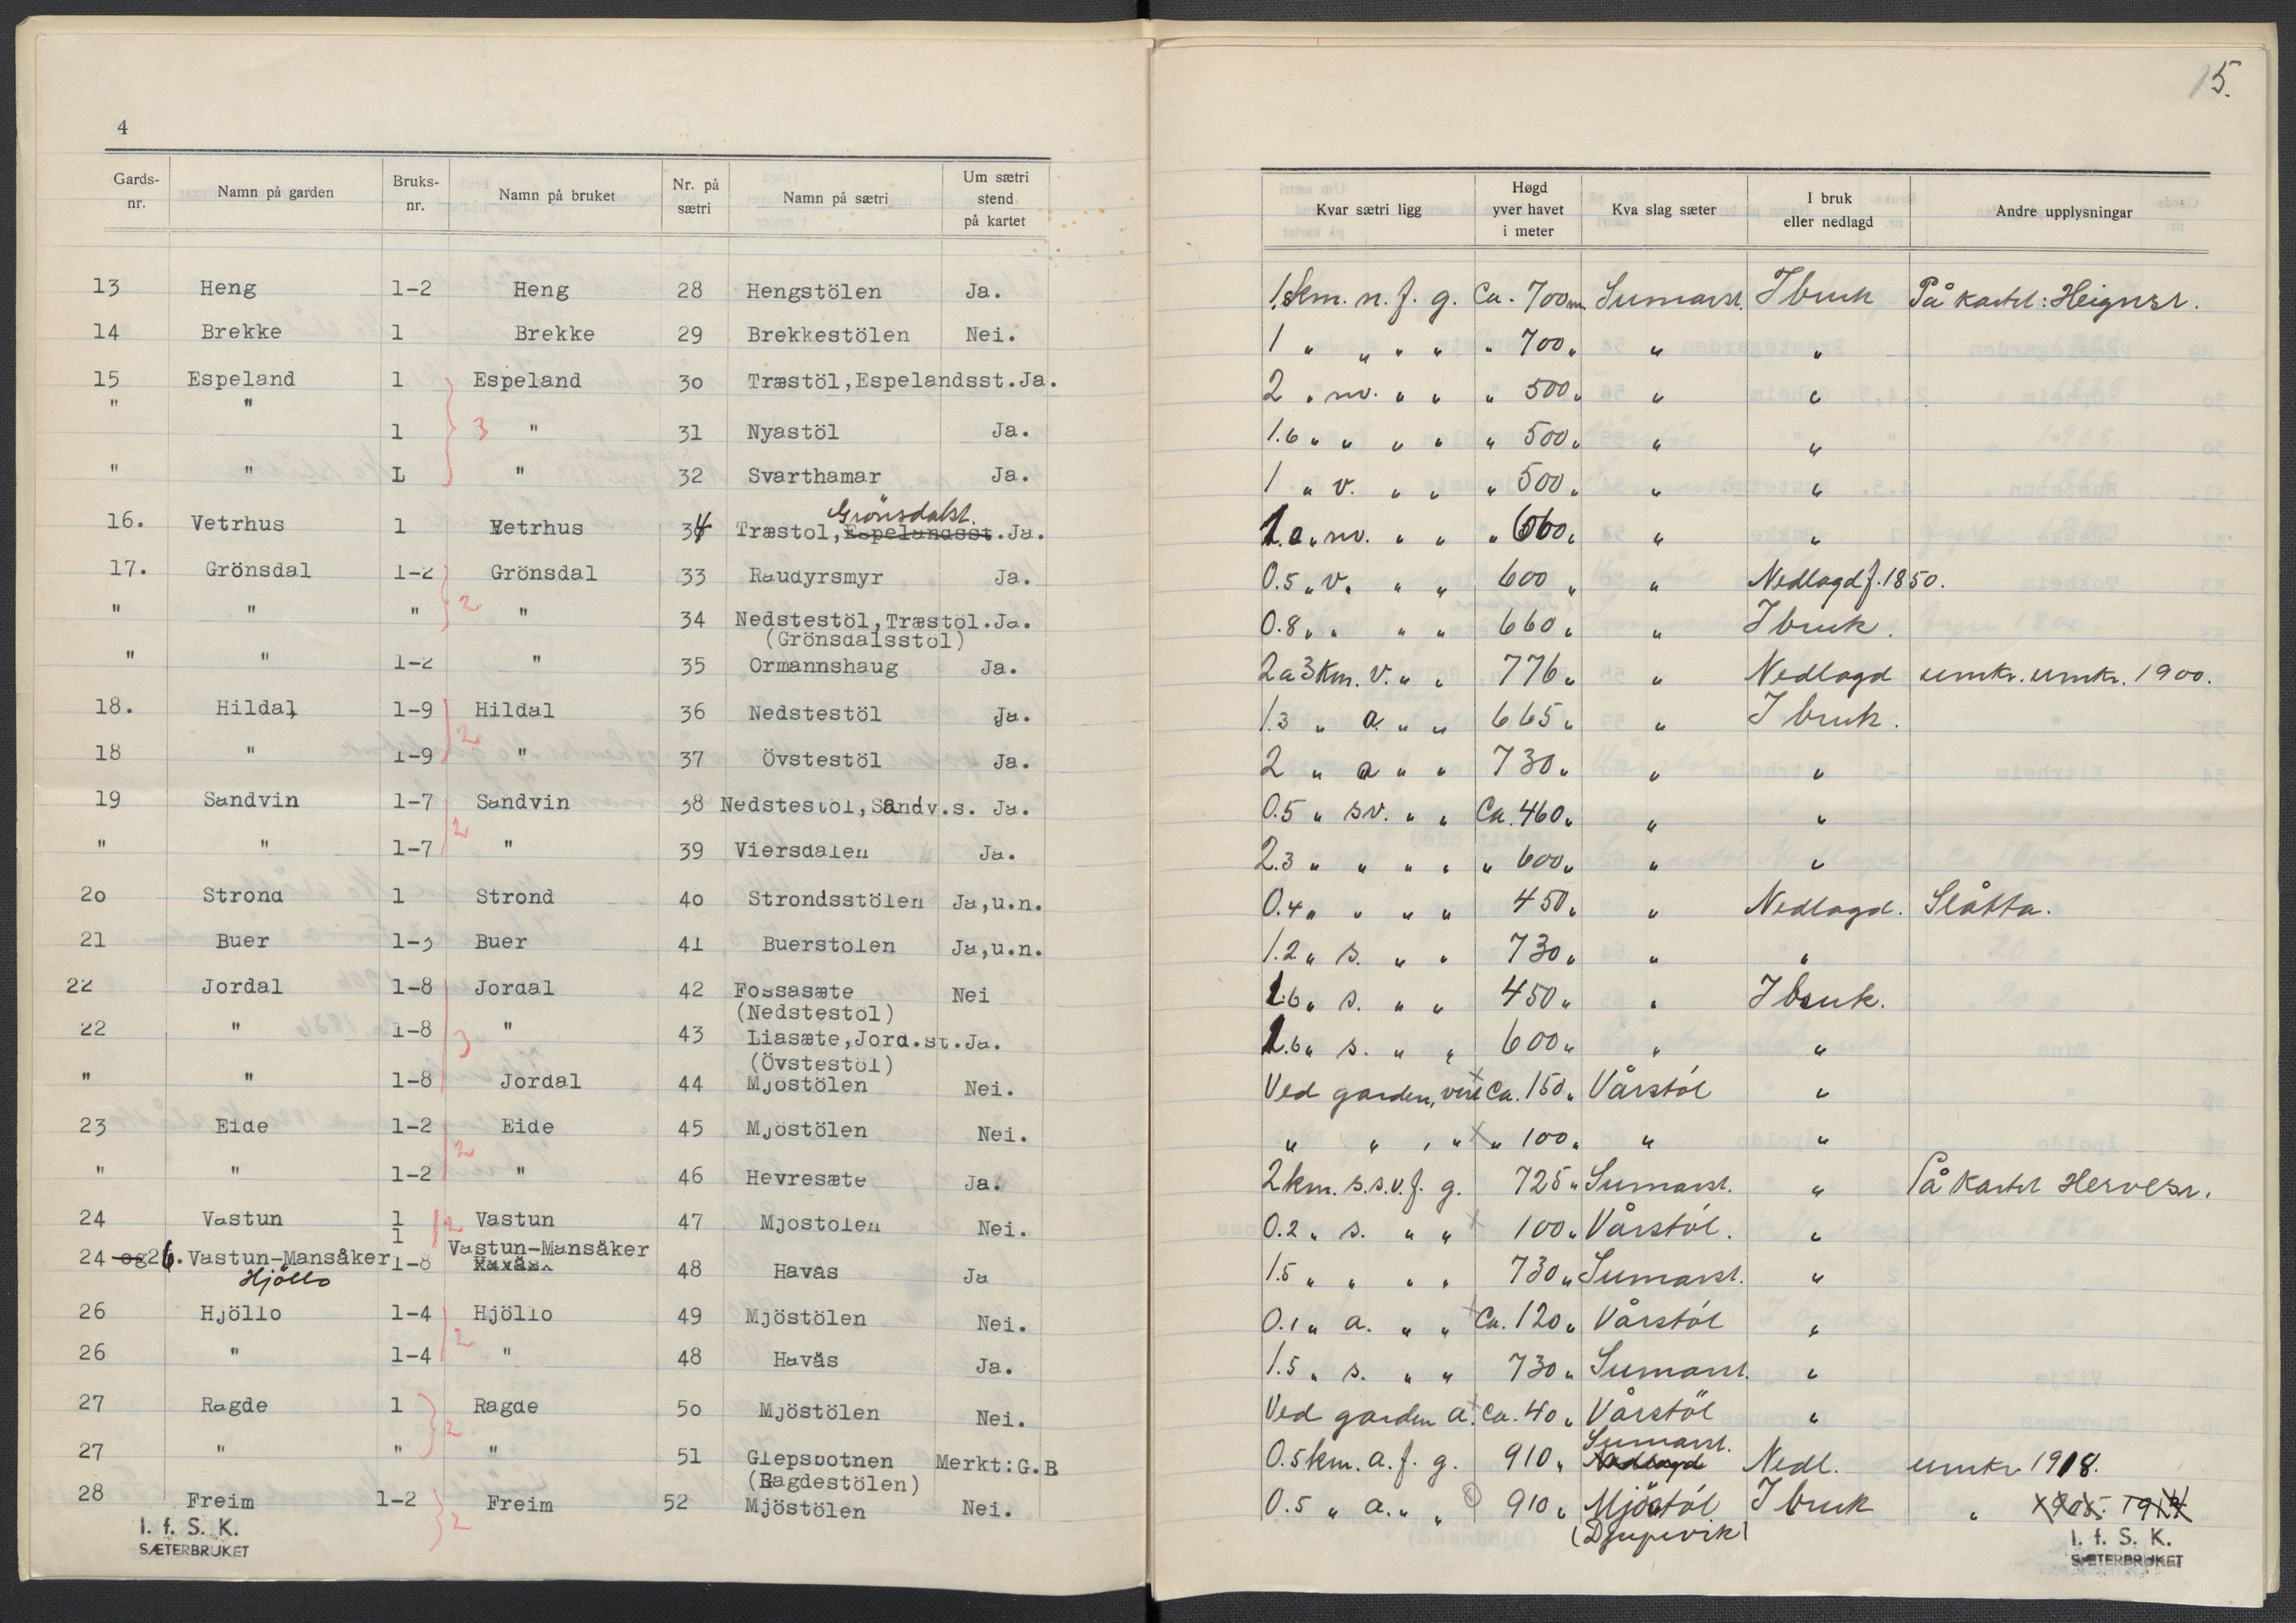 4
Gards-nr. Namn på garden Bruks-nr. Namn på bruket Nr. på sætri Namn på sætri Um sætri stend på kartet
13 Heng 1-2 Heng 28 Hengstölen Ja.
14 Brekke 1 Brekke 29 Brekkestölen Nei.
15 Espeland 1 Espeland 30 Træstöl,Espelandsst.Ja.
" "
1 3 " 31 Nyastöl Ja.
" " L " 32 Svarthamar Ja.
Grönsdalst.
16. Vetrhus 1 Vetrhus 34 Træstol,Espelandsst.Ja.
17. Grönsdal 1-2 Grönsdal 33 Raudyrsmyr Ja.
" " " 2 " 34 Nedstestöl,Træstöl.Ja.
(Grönsdalsstöl)
" " 1-2 " 35 Ormannshaug Ja.
18. Hildal 1-9 Hildal 36 Nedstestöl Ja.
18 " 1-9 2 " 37 Övstestöl Ja.
19 Sandvin 1-7 Sandvin 38 Nedstestöl,Sandv.s. Ja.
" " 1-7 2 " 39 Viersdalen Ja.
2o Strond 1 Strond 4o Strondsstölen Ja,u.n.
21 Buer 1-3 Buer 41 Buerstolen Ja,u.n.
22 Jordal 1-8 Jordal 42 Fossasæte Nei
(Nedstestol)
22 " 1-8 3 " 43 Liasæte,Jord.st.Ja.
(Övstestöl)
" " 1-8 Jordal 44 Mjostölen Nei.
23 Eide 1-2 Eide 45 Mjöstölen Nei.
" " 1-2 2 " 46 Hevresæte Ja.
24 Vastun 1 2 Vastun 47 Mjostolen Nei.
1 Vastun-Mansåker
24 og 26. Vastun-Mansåker 1-8 Havås 48 Havås Ja
Hjöllo
26 Hjöllo 1-4 Hjöllo 49 Mjöstölen Nei.
26 " 1-4 2 " 48 Havås Ja.
27 Ragde 1 Ragde 5o Mjöstölen Nei.
27 " " 2 " 51 Glepsbotnen Merkt:G.B
(Ragdestölen)
28 Freim 1-2 2 Freim 52 Mjöstölen Nei.
I. f. S. K.
SÆTERBRUKET
15.
Kvar sætri ligg Høgd yver havet i meter Kva slag sæter I bruk eller nedlagd Andre upplysningar
1.8km. n. f. g. Ca. 700 m. Sumarst. I bruk På kartet: Heignsr.
1 " " " " " 700 " " "
2 " nv. " " " 500 " " "
1.6 " " " " " 500 " " "
1 " v. " " " 500 " " "
1.0 " nv. " " " 660 " " "
0.5 " v. " " 600 " " Nedlagd f. 1850.
0.8 " " " " 660 " " I bruk.
2 a 3 Km. v. " " 776 " " Nedlagd umkr. umkr. 1900.
1.3 " a " " 665 " " I bruk.
2 " a " " 730 " " "
0.5 " sv. " " Ca. 460 " " "
2.3 " " " " " 600 " " "
0.4 " " " " 450 " " Nedlagd. Slåtta.
1.2 " s. " " 730 " " "
1.6 " s. " " 450 " " I bruk.
1.6 " s. " " 600 " " "
Ved garden, Ca. 150 " Vårstöl "
" " , " " 100 " " "
2 km. s.s.v. f. g. 725 " Sumarst. " På kartet Hervesr.
0.2 " s. " " 100 " Vårstöl. "
1.5 " " " " 730 " Sumarst. "
0.1 " a. " " Ca. 120 " Vårstöl "
1.5 " s. " " 730 " Sumarst. "
Ved garden a. Ca. 40 " Vårstöl "
Sumarst.
0.5 km. a. f. g. 910 " Nedlagd Nedl. umkr 1918.
0.5 " a. " " 910 " Mjöstöl I bruk "
(Djupevik)
I. f. S. K.
SÆTERBRUKET